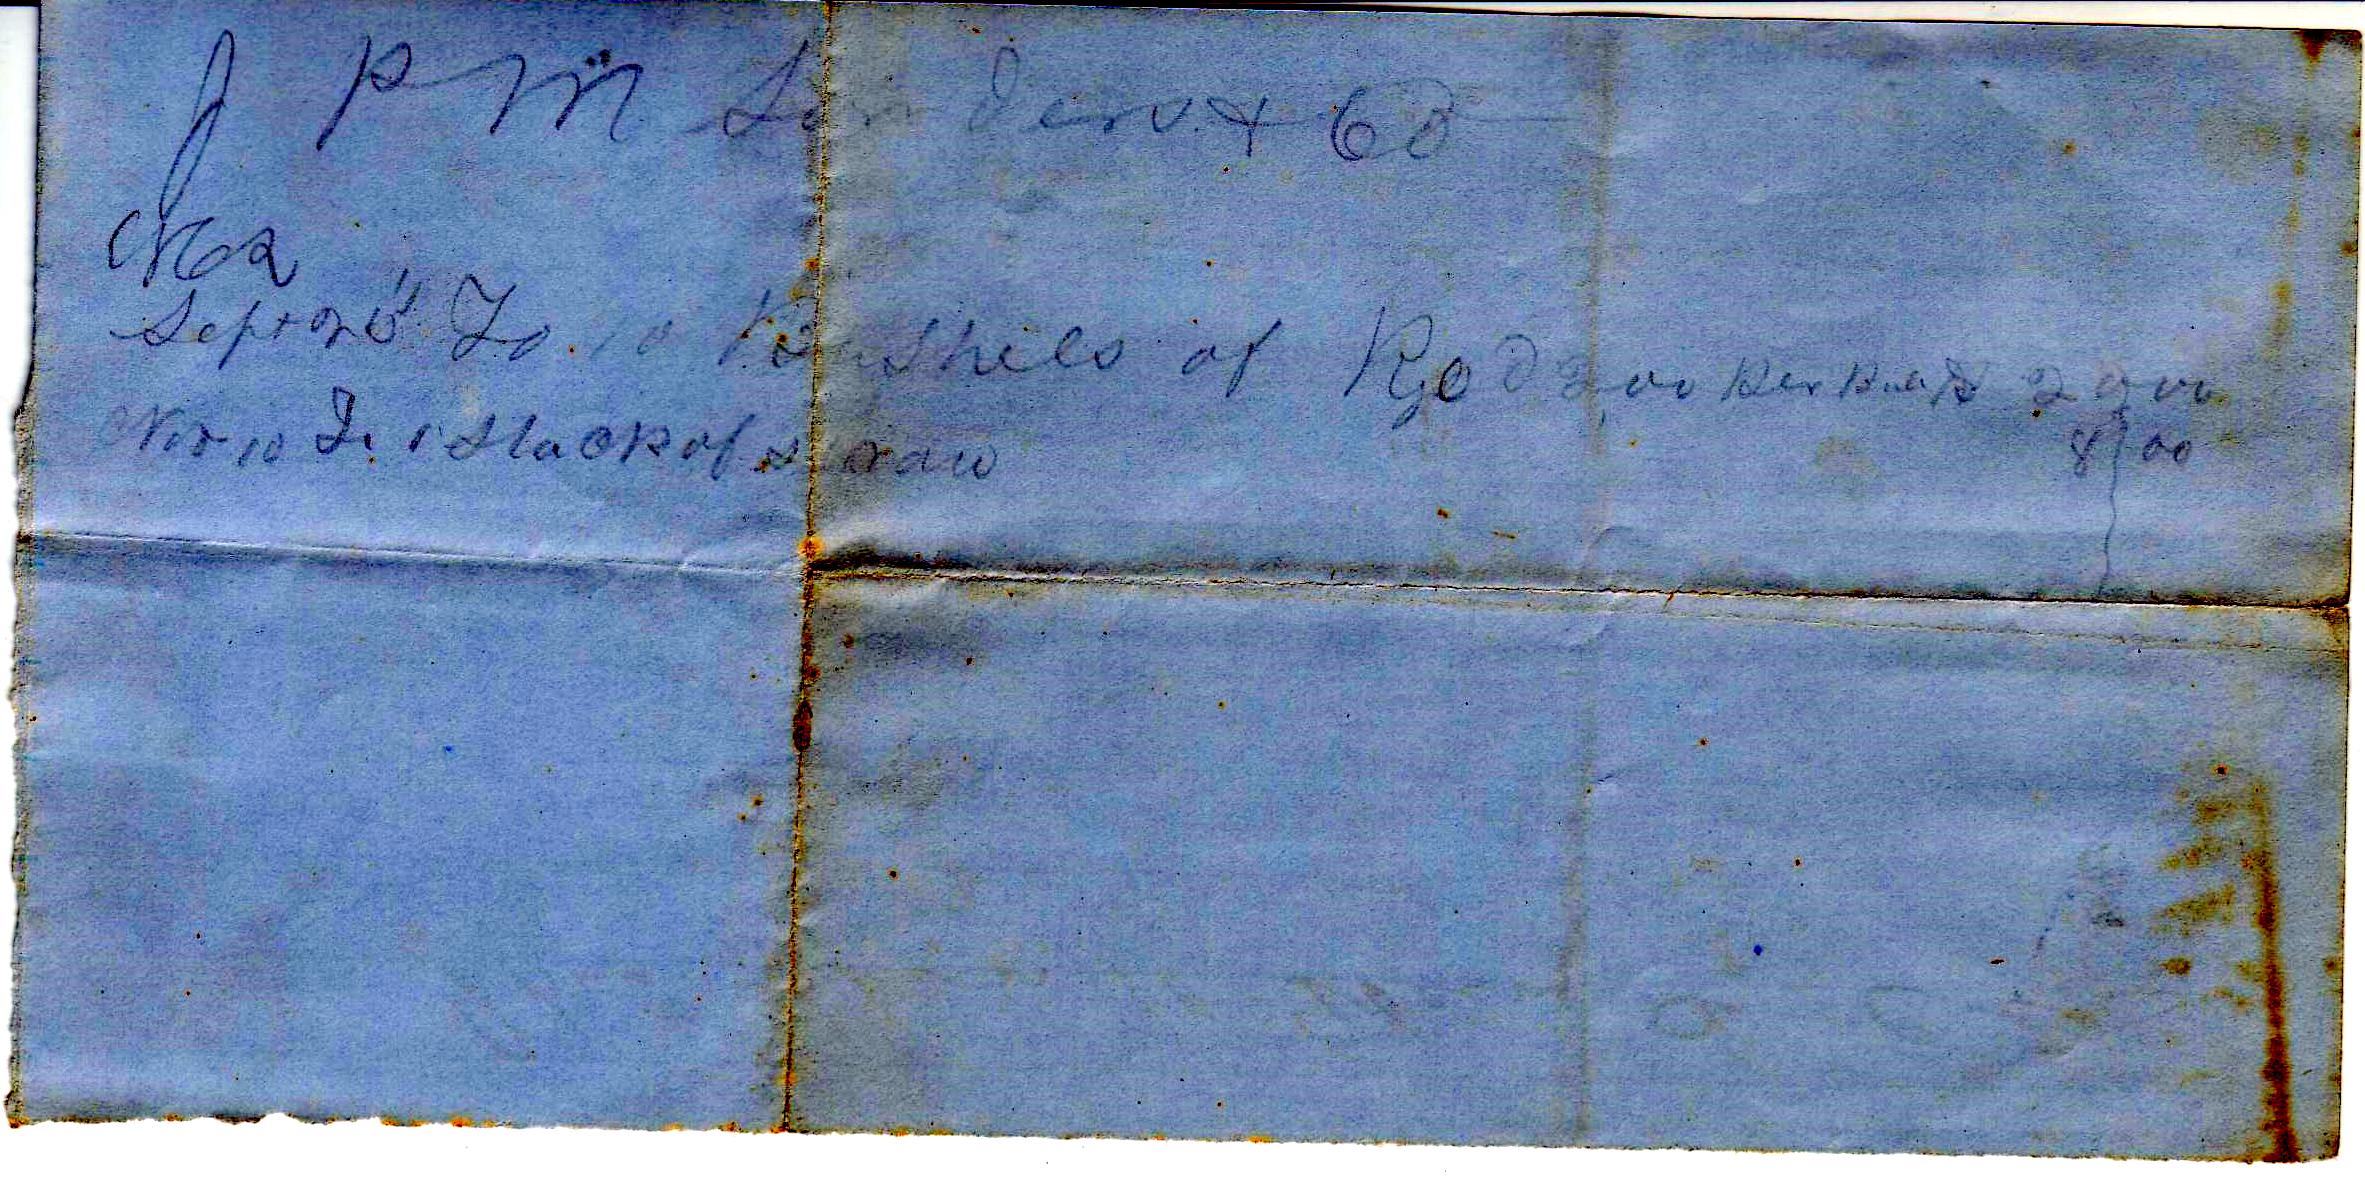 J P M Landers & Co
1862
Sept 26 To 10 Bushels of Rye @ 2,00 per Bush 20 00
Nov 10 To 1 Stack of straw 8 00